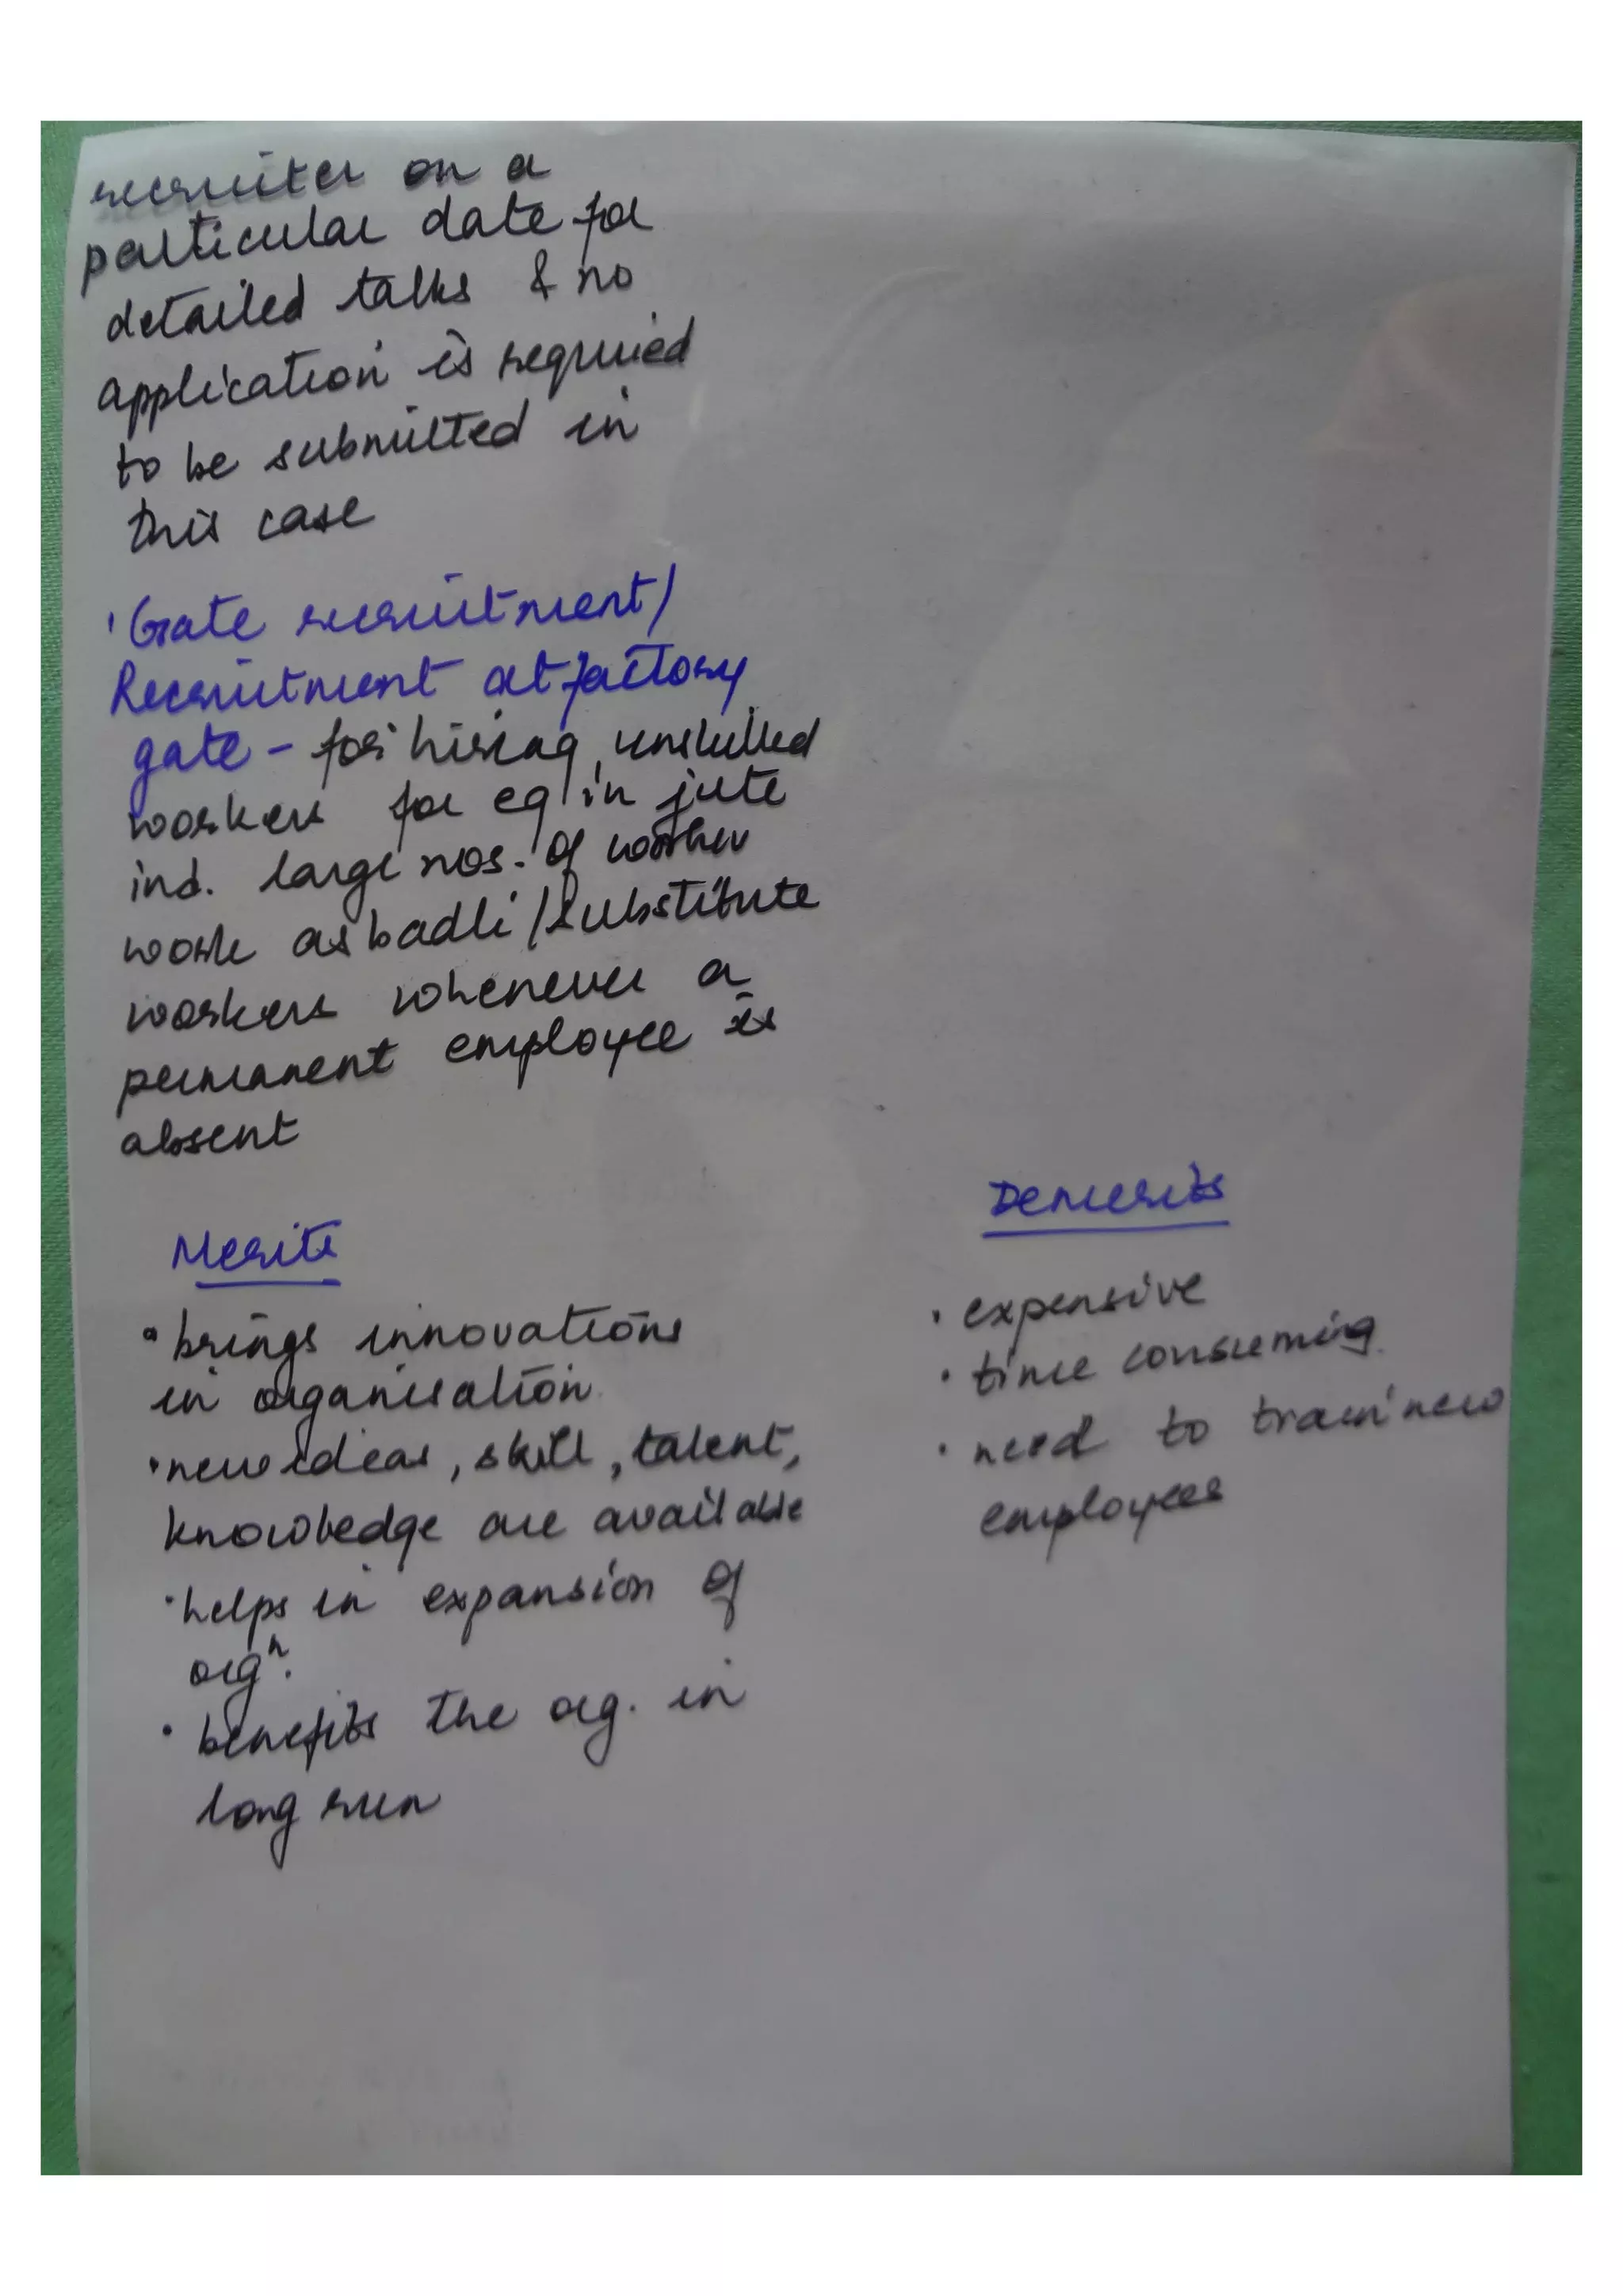 recruiter on a
particular date for
detailed talks & no
application is required
to be submitted in
this case
Gate recruitment/
Recruitment at factory
gate - for hiring unskilled
workers for eg in jute
ind. large nos. of worker
work as badli/substitute
workers whenever a
permanent employee is
absent
Merits
• brings innovations
in organisation
• new ideas, skill, talent,
knowledge are available
• helps in expansion of
orgn.
• benefits the org. in
long run
Demerits
• expensive
• time consuming
• need to train new
employees